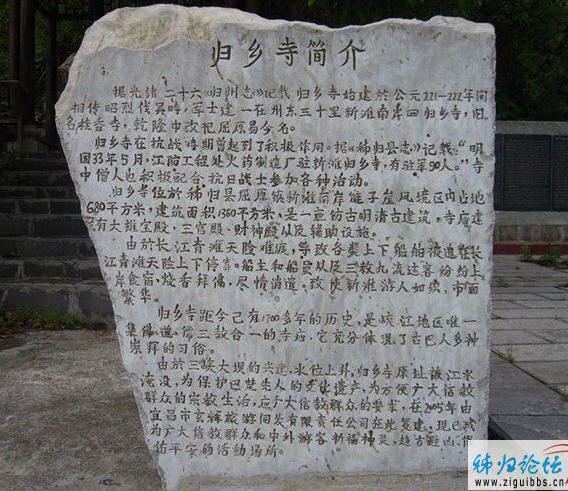 归乡寺简介
据光绪二十六《归州志》记载 归乡寺始建於公元221-222年间
相传昭烈伐吴時，军士建一在州东三十里新滩南岸曰归乡寺，旧
名桂香寺，乾隆中改祀屈原易今名。
归乡寺在抗战時期曾起到了积极作用。据《秭归县志》记载："明
国33年5月，江防工程处火药制造厂驻新滩归乡寺，有驻军90人。"寺
中僧人也积极配合抗日战士参加各种活动。
归乡寺位於秭归县屈原镇新滩南岸链子崖风境区内占地
680平方米，建筑面积1360平方米，是一座仿古明清古建筑，寺庙建
有大雄宝殿，三宫殿、财神殿以及辅助设施。
由於长江青滩天险难渡，导致各类上下船舶被迫在长
江青滩天险上下停靠。船主和船员以及三教九流过客纷纷上
岸食宿，烧香拜佛，尽情消遣。致使新滩游人如续，市面
繁华。
归乡寺距今已有1700多年的历史，是峡江地区唯一
集佛、道、儒三教合一的寺庙，它充分体现了古巴人多种
崇拜的习俗。
由於三峡大坝的兴建，水位上升，归乡寺原址被江水
淹没，为保护巴楚先人的文化遗产，为方便广大信教
群众的宗教生活，应广大信教群众的要求，在2005年由
宜昌市玄辉旅游开发有限责任公司在此复建，现已成
为广大信教群众和中外游客祈福神灵，趋吉避凶，保
佑平安的活动場所。
秭归论坛
www.ziguibbs.cn